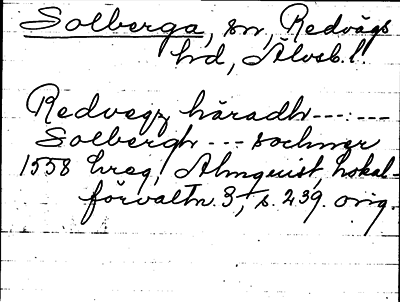 Solberga, sn, Redvägs
hd, Älvsb. l.
Redvegz häradh---:---
Solbergh --- sochner
1558 hreg, Almquist, Lokal-
förvaltn. 3, s. 239. orig.